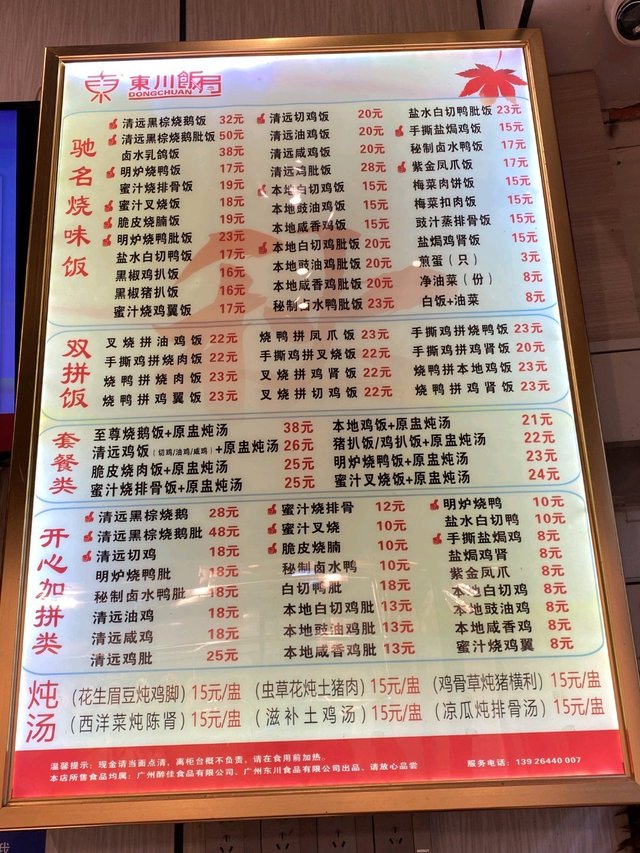 東川飯局
DONGCHUAN
驰名烧味饭
清远黑棕烧鹅饭 32元
清远黑棕烧鹅肶饭 50元
卤水乳鸽饭 38元
明炉烧鸭饭 17元
蜜汁烧排骨饭 19元
蜜汁叉烧饭 18元
脆皮烧腩饭 19元
明炉烧鸭肶饭 23元
盐水白切鸭饭 17元
黑椒鸡扒饭 16元
黑椒猪扒饭 16元
蜜汁烧鸡翼饭 17元
清远切鸡饭 20元
清远油鸡饭 20元
清远咸鸡饭 20元
清远鸡肶饭 28元
本地白切鸡饭 15元
本地豉油鸡饭 15元
本地咸香鸡饭 15元
本地白切鸡肶饭 20元
本地豉油鸡肶饭 20元
本地咸香鸡肶饭 20元
秘制卤水鸭肶饭 23元
盐水白切鸭肶饭 23元
手撕盐焗鸡饭 15元
秘制卤水鸭饭 17元
紫金凤爪饭 17元
梅菜肉饼饭 15元
梅菜扣肉饭 15元
豉汁蒸排骨饭 15元
盐焗鸡肾饭 15元
煎蛋（只） 3元
净油菜（份） 8元
白饭+油菜 8元
双拼饭
叉烧拼油鸡饭 22元
手撕鸡拼烧肉饭 22元
烧鸭拼烧肉饭 23元
烧鸭拼鸡翼饭 23元
烧鸭拼凤爪饭 23元
手撕鸡拼叉烧饭 22元
叉烧拼鸡肾饭 22元
叉烧拼切鸡饭 22元
手撕鸡拼烧鸭饭 23元
手撕鸡拼鸡肾饭 20元
烧鸭拼本地鸡饭 23元
烧鸭拼鸡肾饭 23元
套餐类
至尊烧鹅饭+原盅炖汤 38元
清远鸡饭（切鸡/油鸡/咸鸡）+原盅炖汤 26元
脆皮烧肉饭+原盅炖汤 25元
蜜汁烧排骨饭+原盅炖汤 25元
本地鸡饭+原盅炖汤 21元
猪扒饭/鸡扒饭+原盅炖汤 22元
明炉烧鸭饭+原盅炖汤 23元
蜜汁叉烧饭+原盅炖汤 24元
开心加拼类
清远黑棕烧鹅 28元
清远黑棕烧鹅肶 48元
清远切鸡 18元
明炉烧鸭肶 18元
秘制卤水鸭肶 18元
清远油鸡 18元
清远咸鸡 18元
清远鸡肶 25元
蜜汁烧排骨 12元
蜜汁叉烧 10元
脆皮烧腩 10元
秘制卤水鸭 10元
白切鸭肶 18元
本地白切鸡肶 13元
本地豉油鸡肶 13元
本地咸香鸡肶 13元
明炉烧鸭 10元
盐水白切鸭 10元
手撕盐焗鸡 8元
盐焗鸡肾 8元
紫金凤爪 8元
本地白切鸡 8元
本地豉油鸡 8元
本地咸香鸡 8元
蜜汁烧鸡翼 8元
炖汤
（花生眉豆炖鸡脚）15元/盅
（西洋菜炖陈肾）15元/盅
（虫草花炖土猪肉）15元/盅
（滋补土鸡汤）15元/盅
（鸡骨草炖猪横利）15元/盅
（凉瓜炖排骨汤）15元/盅
温馨提示：现金请当面点清，离柜台概不负责，请在食用前加热。
服务电话：139 26440 007
本店所售食品均属：广州醉佳食品有限公司、广州东川食品有限公司出品、请放心品尝